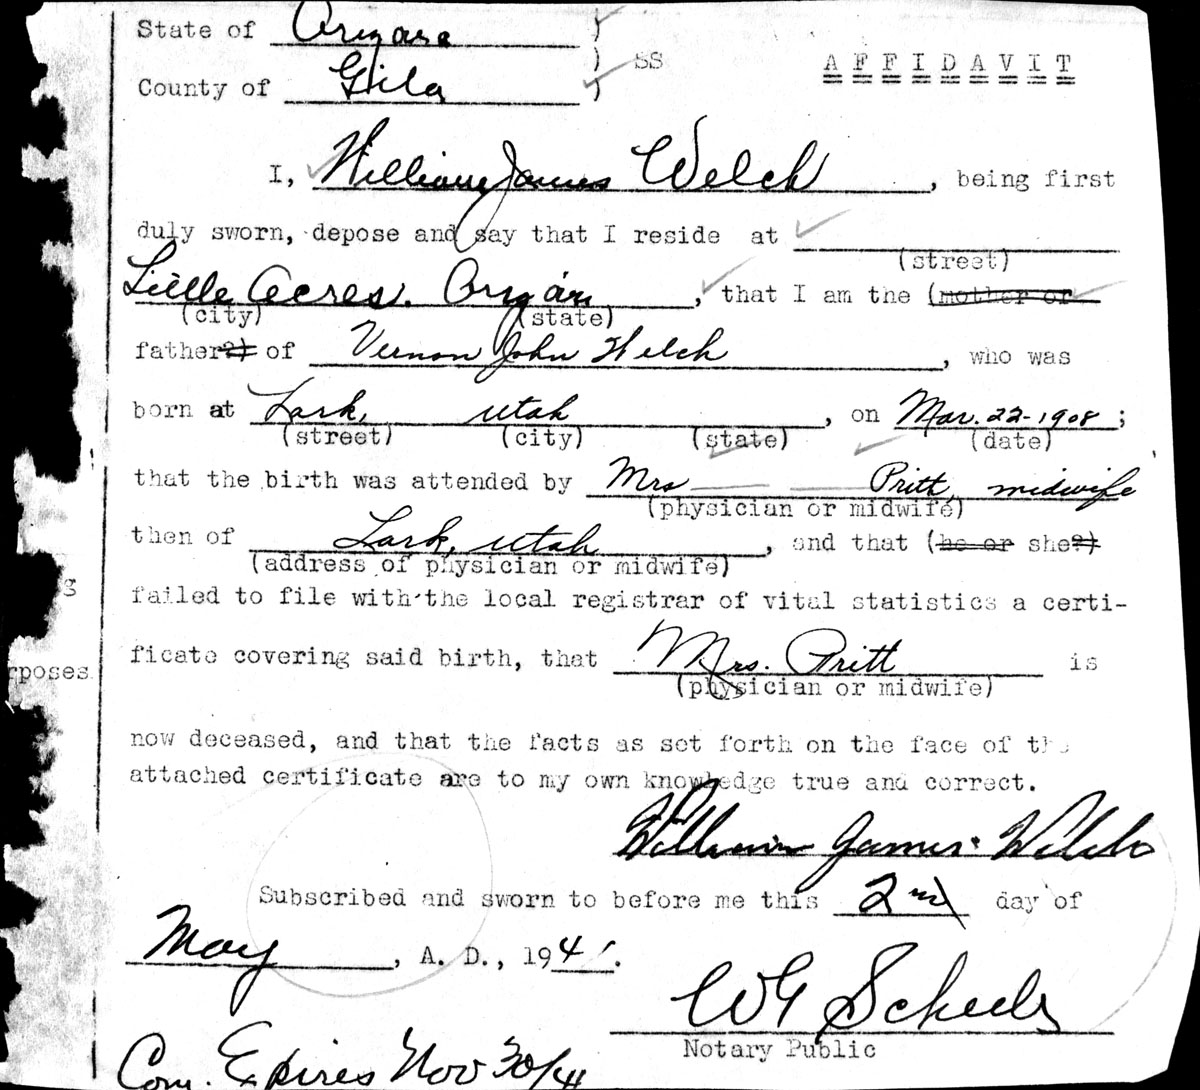 State of Arizona )
) SS AFFIDAVIT
County of Gila )
I, William James Welch, being first
duly sworn, depose and say that I reside at
(street)
Little Acres. Arizona, that I am the (mother or
(city) (state)
father?) of Vernon John Welch, who was
born at Lark, Utah, on Mar. 22-1908;
(street) (city) (state) (date)
that the birth was attended by Mrs — — Pritt, midwife
(physician or midwife)
then of Lark, Utah, and that (he or she?)
(address of physician or midwife)
failed to file with the local registrar of vital statistics a certi-
ficate covering said birth, that Mrs. Pritt is
(physician or midwife)
rposes
now deceased, and that the facts as set forth on the face of the
attached certificate are to my own knowledge true and correct.
William James Welch
Subscribed and sworn to before me this 2nd day of
May, A. D., 1941.
Notary Public
Com. Expires Nov 30/41